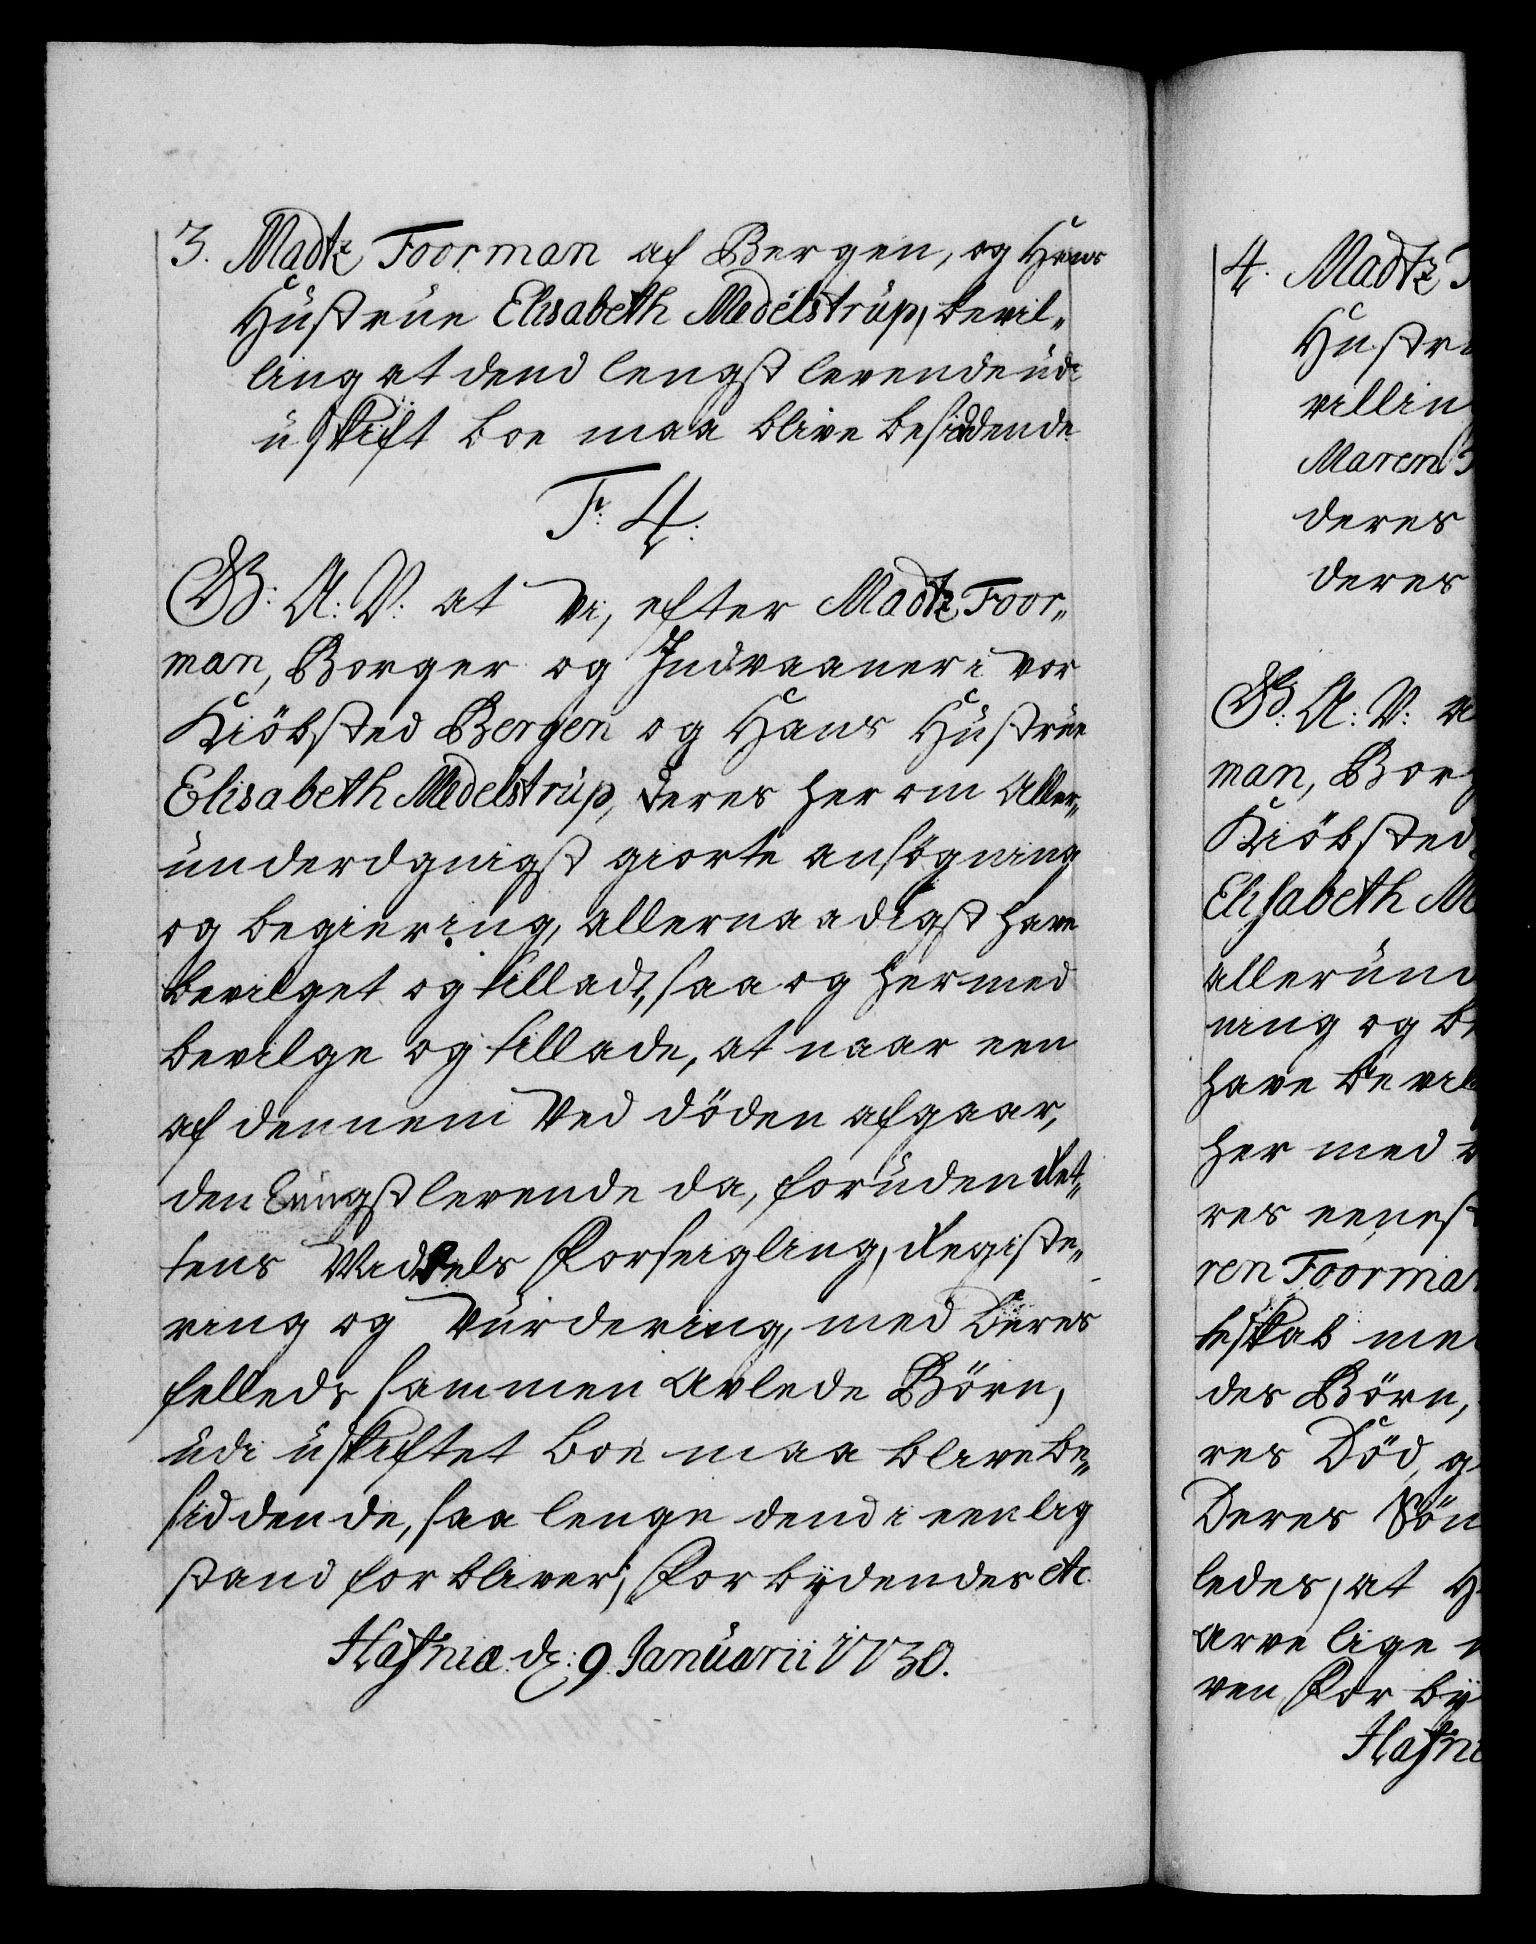 3. Madtz Foorman af Bergen, og Hans
Hustrue Elisabeth Medelstrup, bevil„
ling at dend lengst levende udi
uskift boe maa blive besiddende
F: 4.
G: A: V: at Vi, efter Madtz Foor„
man, Borger og Indvaaner i vor
Kiöbsted Bergen og Hans Hustrue
Elisabeth Medelstrup, deres her om Aller„
underdanigst giorte ansögning
og begiering, allernaadigst have
bevilget og tilladt, saa og hermed
bevilge og tillade, at naar een
af dennem Ved döden afgaar,
den lengst levende da, foruden Ret„
tens Middels Forseigling, Registe„
ring og Vurdering, med Deres
felleds sammen Avlede Börn,
udi uskiftet boe maa blive be„
siddende, saa lenge dend i eenlig
stand forbliver; Forbydendes etc.
Hafniæ d: 9 Januarii 1730.
4. Madtz
Hustru
villin
Maren
deres
deres
G: A: V: a
man, Borg
Kiöbsted
Elisabeth Me
allerund
ning og be
have bevil
her med
res eenest
ren Foorman
teskab me
des Börn,
res Död,
Deres Sön
ledes, at H
Arve lige
ven, Forby
Hafni